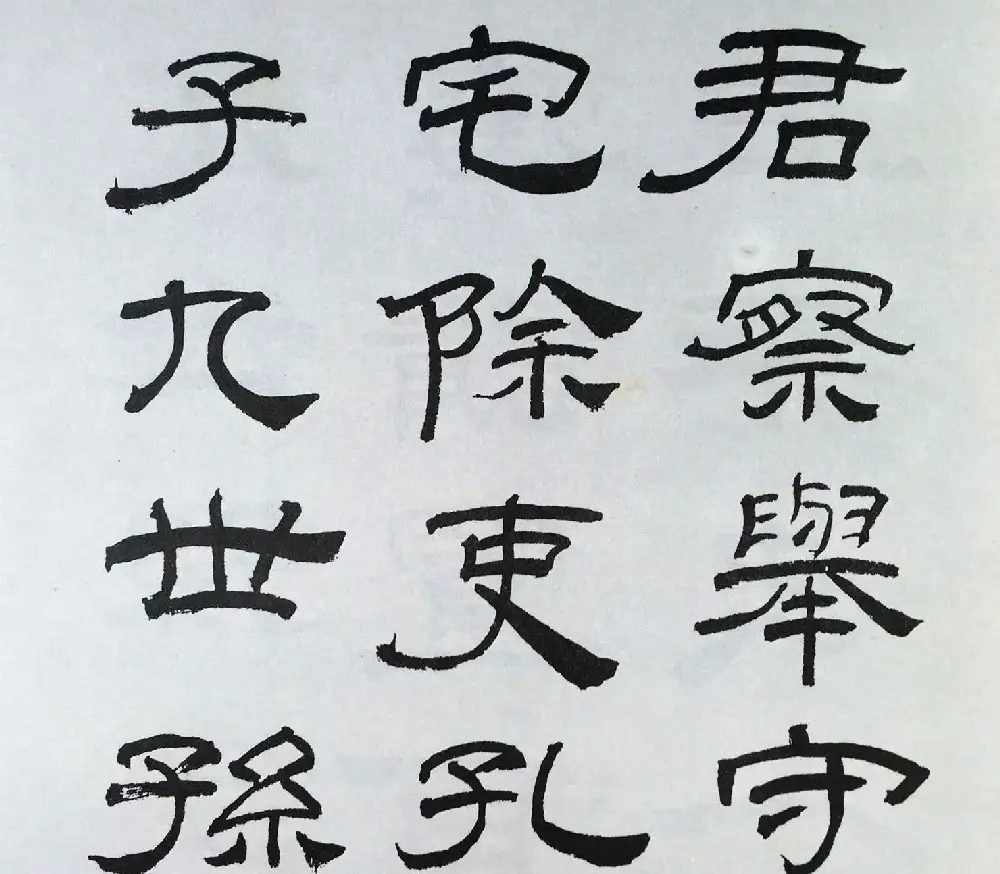 君察舉守
宅除吏孔
子九世孫